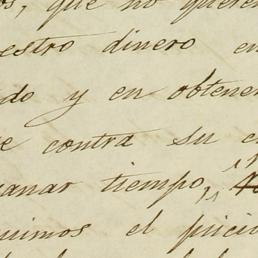 os, que no quere
estro dinero en
do y en obtene
e contra su e
anar tiempo,
uimos el juici